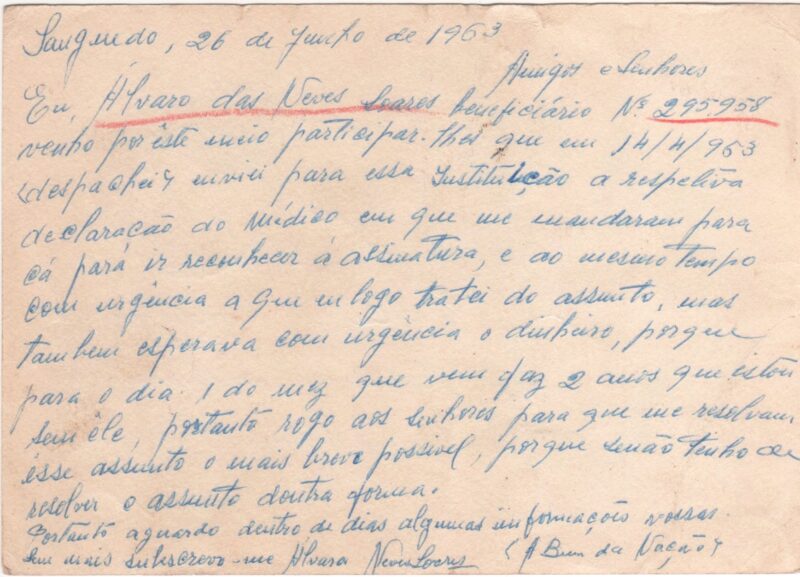 Sanguedo, 26 de Junho de 1963
Amigos e Senhores
Eu, Álvaro das Neves Soares beneficiário Nº 295.958
venho por êste meio participar-lhes que em 14/4/963
(despachei) enviei para essa Instituição a respetiva
declaração do Médico em que me mandaram para
cá pará ir reconhecer á assinatura, e ao mesmo tempo
com urgência a que eu logo tratei do assunto, mas
tambem esperava com urgência o dinheiro, porque
para o dia 1 do mez que vem faz 2 anos que estou
sem êle, portanto rogo aos senhores para que me resolvam
êsse assunto o mais breve possivel, porque senão tenho de
resolver o assunto doutra forma.
Portanto aguardo dentro de dias algumas informações vossas.
Sem mais subscrevo-me Álvaro Neves Soares (A Bem da Nação)